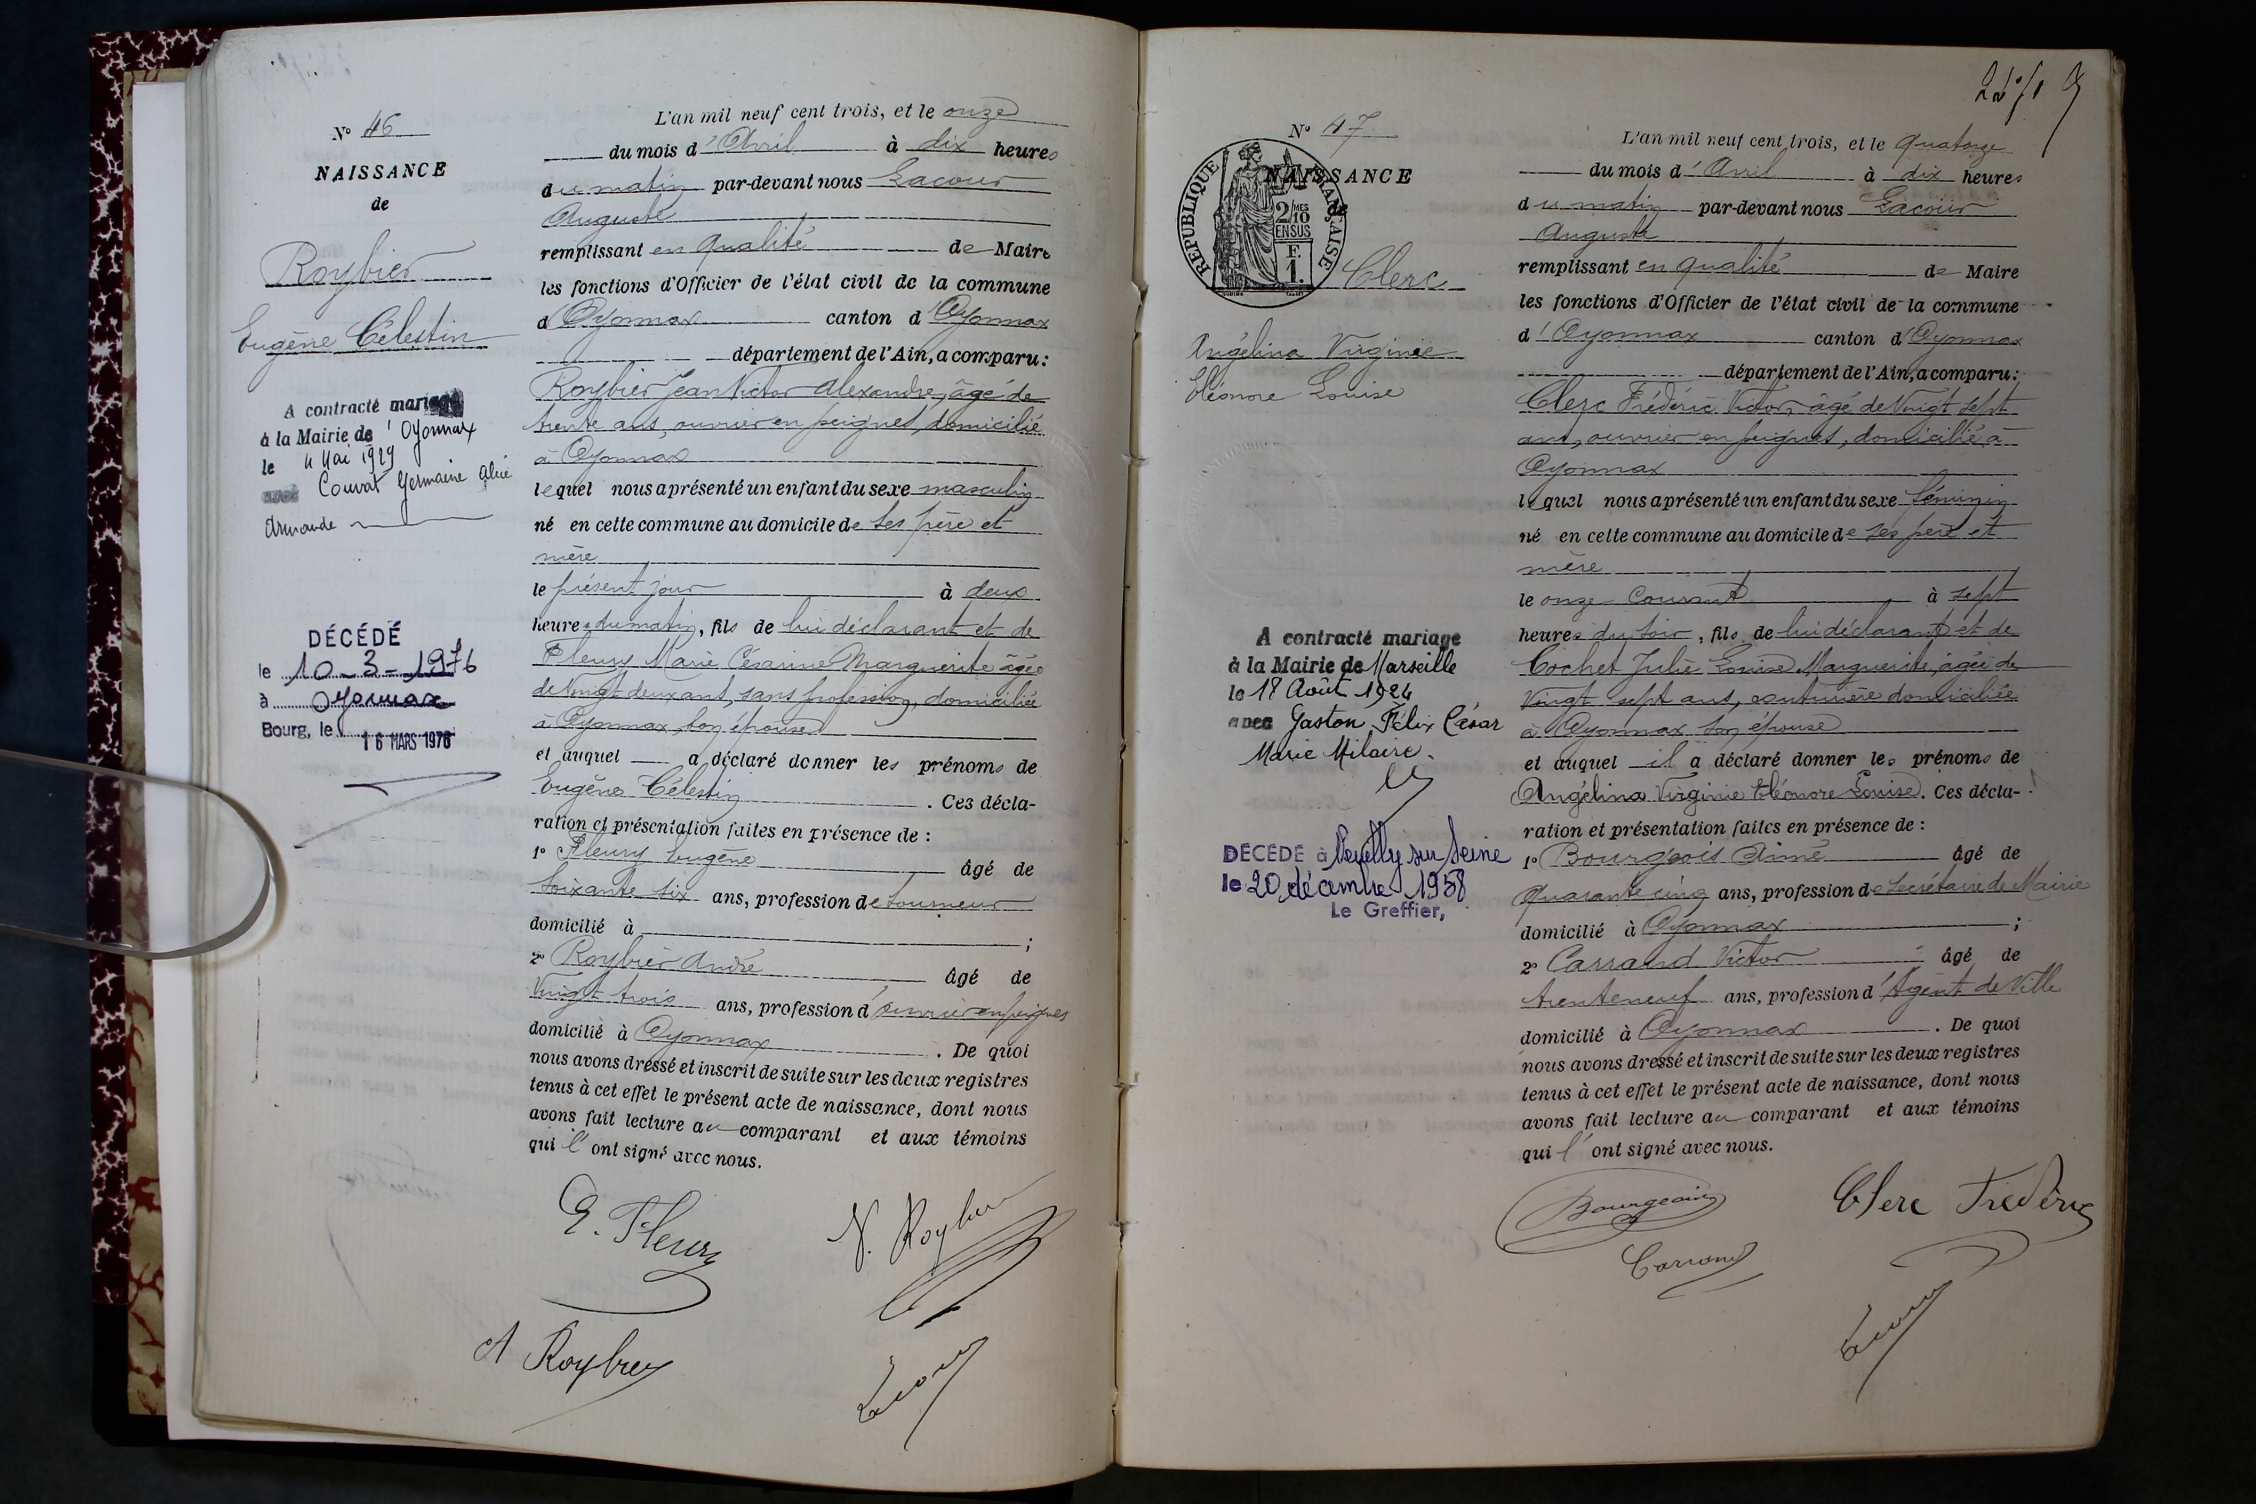 N° 46
NAISSANCE
de
Roybier
Eugène Célestin
A contracté mariage
à la Mairie de ' Oyonnax
le 4 Mai 1929
avec Couvat Germaine Alice
Armande
DÉCÉDÉ
le 10-3-1976
à Oyonnax
Bourg, le 16 MARS 1976
L'an mil neuf cent trois, et le onze
du mois d'Avril à dix heures
du matin par-devant nous Lacour
Auguste
remplissant en qualité de Maire
les fonctions d'Officier de l'état civil de la commune
d'Oyonnax canton d'Oyonnax
département de l'Ain, a comparu :
Roybier Jean Victor Alexandre, âgé de
trente ans, ouvrier en peignes, domicilié
à Oyonnax
lequel nous a présenté un enfant du sexe masculin
né en cette commune au domicile de ses père et
mère
le présent jour à deux
heures du matin, fils de lui déclarant et de
Fleury Marie Césarine Marguerite âgée
de vingt deux ans, sans profession, domiciliée
à Oyonnax, son épouse
et auquel a déclaré donner les prénoms de
Eugène Célestin. Ces décla-
ration et présentation faites en présence de :
1° Fleury Eugène âgé de
soixante six ans, profession de tourneur
domicilié à ;
2° Roybier André âgé de
Vingt trois ans, profession d'ouvrier en peignes
domicilié à Oyonnax. De quoi
nous avons dressé et inscrit de suite sur les deux registres
tenus à cet effet le présent acte de naissance, dont nous
avons fait lecture au comparant et aux témoins
qui l'ont signé avec nous.
E. Fleury
V. Roybier
A Roybier
Lacour
N° 47
NAISSANCE
de
REPUBLIQUE FRANÇAISE
2/10 MES
EN SUS
F.
1.
Clerc
Angélina Virginie
Eléonore Louise
A contracté mariage
à la Mairie de Marseille
le 18 Août 1924
avec Gaston Félix César
Marie Milaire.
DÉCÉDÉ à Neuilly sur Seine
le 20 décembre 1958
Le Greffier,
L'an mil neuf cent trois, et le quatorze
du mois d'Avril à dix heures
du matin par-devant nous Lacour
Auguste
remplissant en qualité de Maire
les fonctions d'Officier de l'état civil de la commune
d'Oyonnax canton d'Oyonnax
département de l'Ain, a comparu :
Clerc Frédéric Victor, âgé de vingt sept
ans, ouvrier en peignes, domicilié à
Oyonnax
lequel nous a présenté un enfant du sexe féminin
né en cette commune au domicile de ses père et
mère
le onze courant à sept
heures du soir, fils de lui déclarant et de
Cochet Julie Louise Marguerite, âgée de
vingt sept ans, couturière domiciliée
à Oyonnax son épouse
et auquel il a déclaré donner les prénoms de
Angélina Virginie Eléonore Louise. Ces décla-
ration et présentation faites en présence de :
1° Bourgeois Aimé âgé de
quarante cinq ans, profession de Secrétaire de Mairie
domicilié à Oyonnax ;
2° Carrand Victor âgé de
trente neuf ans, profession d'Agent de Ville
domicilié à Oyonnax. De quoi
nous avons dressé et inscrit de suite sur les deux registres
tenus à cet effet le présent acte de naissance, dont nous
avons fait lecture au comparant et aux témoins
qui l'ont signé avec nous.
Bourgeois
Clerc Frédéric
Carrand
Lacour